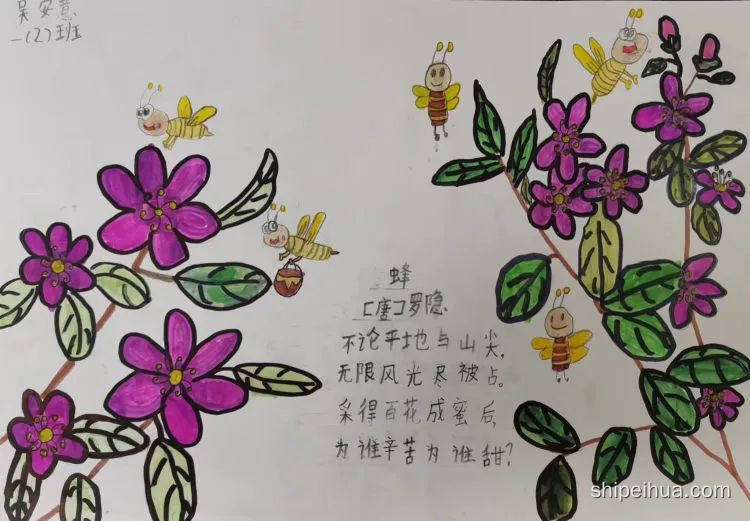 吴安慧
一(2)班
蜂
[唐]罗隐
不论平地与山尖,
无限风光尽被占。
采得百花成蜜后,
为谁辛苦为谁甜?
shipeihua.com